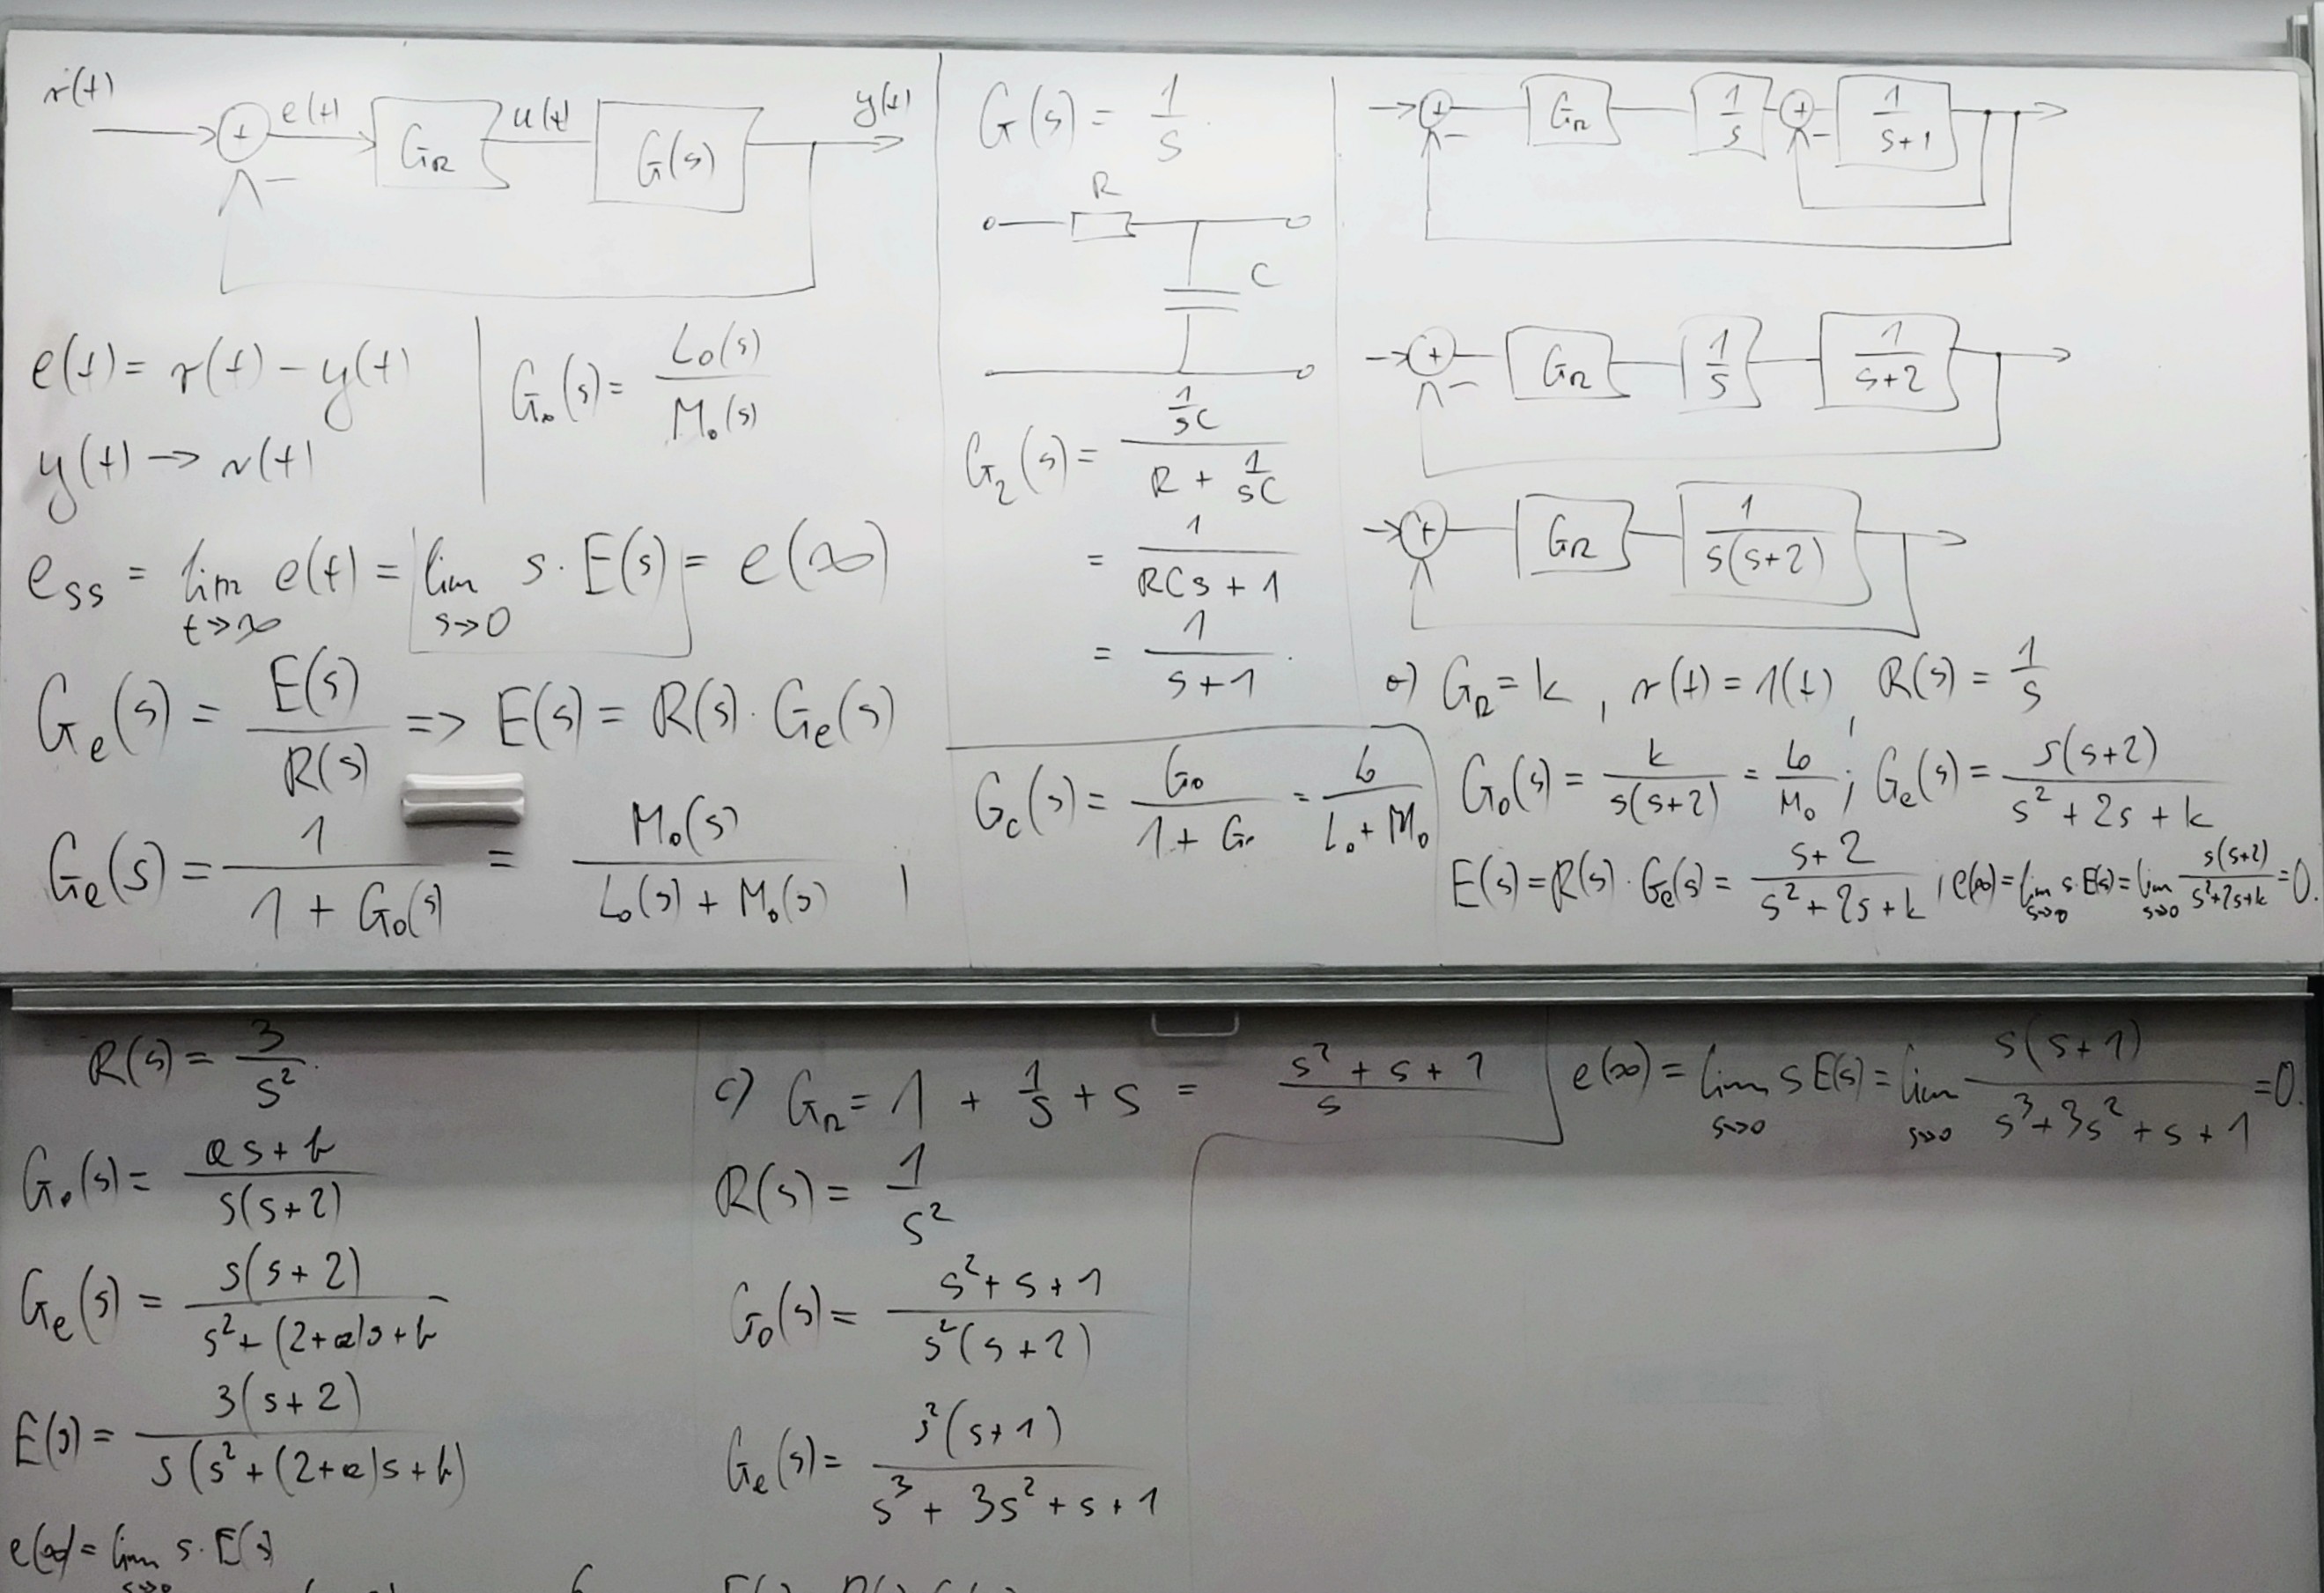 r(t)
e(t)
G_R
u(t)
G(s)
y(t)
+
−
e(t) = r(t) − y(t)
y(t) → r(t)
G_o(s) = L_o(s) / M_o(s)
e_ss = lim_{t→∞} e(t) = lim_{s→0} s · E(s) = e(∞)
G_e(s) = E(s) / R(s) => E(s) = R(s) · G_e(s)
G_e(s) = 1 / (1 + G_o(s)) = M_o(s) / (L_o(s) + M_o(s))
G(s) = 1/s.
R
C
G_2(s) = (1/sC) / (R + 1/sC)
= 1 / (RCs + 1)
= 1 / (s+1).
G_c(s) = G_o / (1 + G_o) = L_o / (L_o + M_o)
+ − G_R 1/s + − 1/(s+1)
+ − G_R 1/s 1/(s+2)
+ G_R 1/(s(s+2))
a) G_R = k, r(t) = 1(t), R(s) = 1/s
G_o(s) = k / (s(s+2)) = L_o / M_o ; G_e(s) = s(s+2) / (s² + 2s + k)
E(s) = R(s) · G_e(s) = (s+2) / (s² + 2s + k) , e(∞) = lim_{s→0} s·E(s) = lim_{s→0} s(s+2) / (s²+2s+k) = 0.
R(s) = 3/s².
G_o(s) = (as + b) / (s(s+2))
G_e(s) = s(s+2) / (s² + (2+a)s + b)
E(s) = 3(s+2) / (s(s² + (2+a)s + b))
e(∞) = lim_{s→0} s · E(s)
c) G_R = 1 + 1/s + s = (s² + s + 1) / s
R(s) = 1/s²
G_o(s) = (s² + s + 1) / (s²(s+2))
G_e(s) = s²(s+1) / (s³ + 3s² + s + 1)
e(∞) = lim_{s→0} s E(s) = lim_{s→0} s(s+1) / (s³ + 3s² + s + 1) = 0.